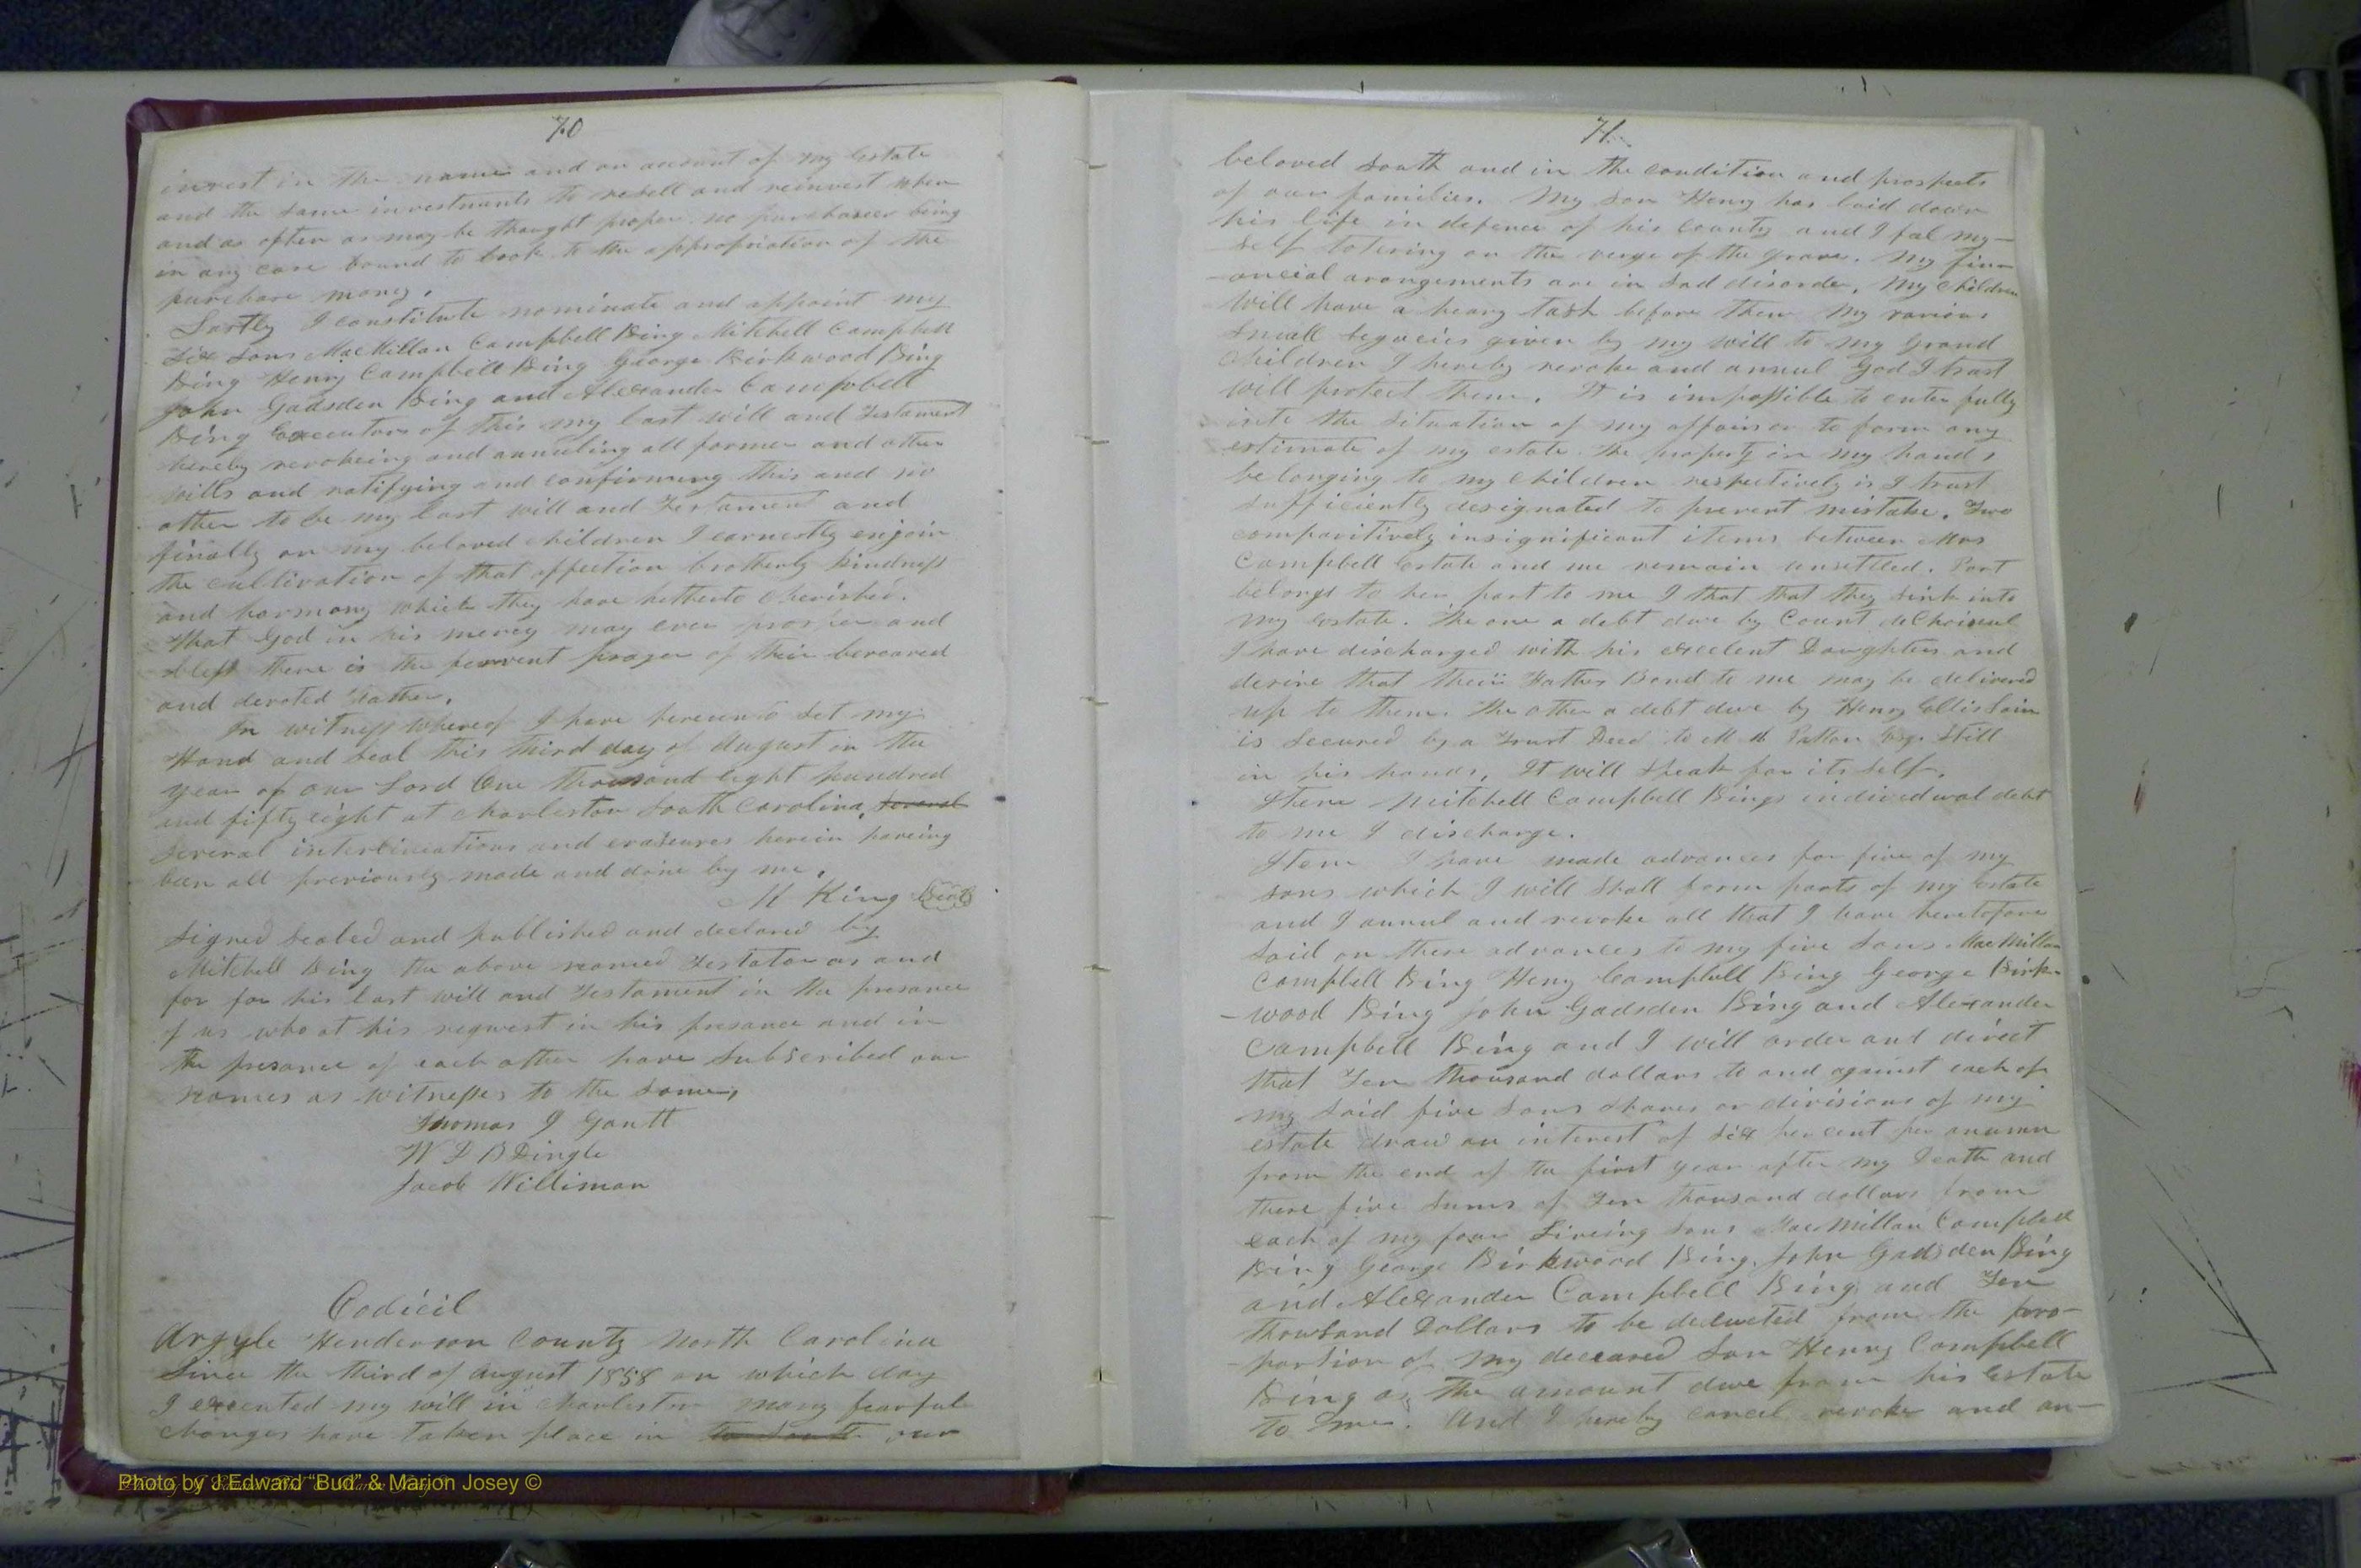 70
invest in the name and on account of my Estate
and the same investments to resell and reinvest when
and as often as may be thought proper no purchaser being
in any case bound to look to the appropriation of the
purchase money.
Lastly I constitute nominate and appoint my
Six Sons MacMillan Campbell King Mitchell Campbell
King Henry Campbell King George Kirkwood King
John Gadsden King and Alexander Campbell
King Executors of this my last will and Testament
hereby revokeing and annuling all former and other
wills and ratifying and confirming this and no
other to be my last will and Testament and
finally on my beloved children I earnestly enjoin
the cultivation of that affection brotherly kindness
and harmony which they have hitherto cherished.
That God in his mercy may ever prosper and
bless them is the fervent prayer of their bereaved
and devoted Father.
In witness whereof I have hereunto Set my
Hand and Seal this third day of August in the
year of our Lord One thousand Eight hundred
and fifty eight at Charleston South Carolina, several
Several interlineations and eraseures herein haveing
been all previously made and done by me.
M King Seal
Signed Sealed and published and declared by
Mitchell King the above named Testator as and
for for his last will and Testament in the presance
of us who at his request in his presance and in
the presance of each other have Subscribed our
names as witnesses to the Same,
Thomas J Gantt
W D B Dingle
Jacob Williman
Codicil
Argyle Henderson County North Carolina
Since the third of August 1858 on which day
I executed my will in Charleston many fearful
changes have taken place in to South our
71.
beloved South and in the condition and prospects
of our families. My Son Henry has laid down
his life in defence of his County and I fal my-
self totering on the verge of the grave. My fin-
-ancial arangements are in Sad disorder. My children
Will have a heavy task before them My various
Small legacies given by my will to my Grand
Children I hereby revoke and annul God I trust
will protect them. It is impossible to enter fully
into the Situation of my affairs or to form any
estimate of my estate The property in my hands
belonging to my children respectively is I trust
Sufficiently designated to prevent mistake. Two
comparitively insignificant items between Mrs
Campbell Estate and me remain unsettled. Part
belongs to her part to me I that that they Sink into
my Estate. The one a debt due by Count deChoiseul
I have discharged with his excelent Daughters and
desire that their Father Bond to me may be delivered
up to them. The other a debt due by Henry Ellis
is Secured by a Trust Deed to M M Patton Esqr Still
in his hands, It will Speak for its Self.
Item Mitchell Campbell Kings indivedual debt
to me I discharge.
Item I have made advances for five of my
sons which I will Shall form parts of my Estate
and I annul and revoke all that I have heretofore
Said on these advances to my five Sons MacMillan
Campbell King Heny Campbell King George Kirk-
-wood King John Gadsden King and Alexander
Campbell King and I will order and direct
that Ten thousand dollars to and against each of
my Said five Sons Shares or divisions of my
estate draw an interest of Six per cent per anumn
from the end of the first year after my Death and
these five Sums of Ten thousand dollars from
each of my four Liveing Sons MacMillan Campbell
King George Kirkwood King, John Gadsden King
and Alexander Campbell King and Ten
thousand Dollars to be deducted from the pro-
-portion of my deceased Son Henry Campbell
King as The amount due from his Estate
to me. And I hereby cancel revoke and an-
Photo by J Edward "Bud" & Marion Josey ©